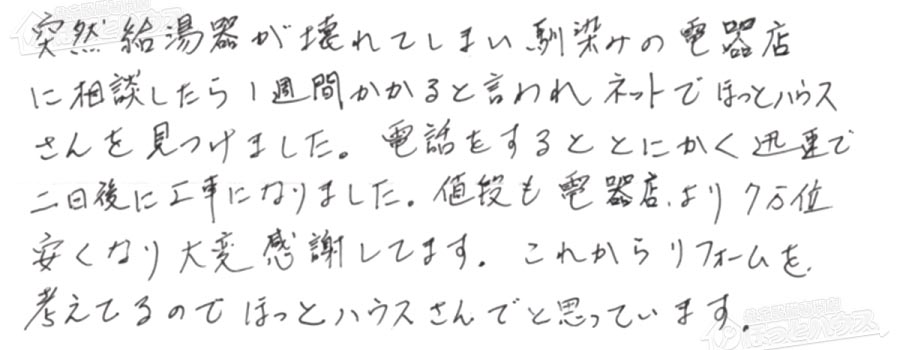 突然給湯器が壊れてしまい馴染みの電器店
に相談したら1週間かかると言われネットでほっとハウス
さんを見つけました。電話をするととにかく迅速で
二日後に工事になりました。値段も電器店より7万位
安くなり大変感謝してます。これからリフォームを
考えてるのでほっとハウスさんでと思っています。
ほっとハウス